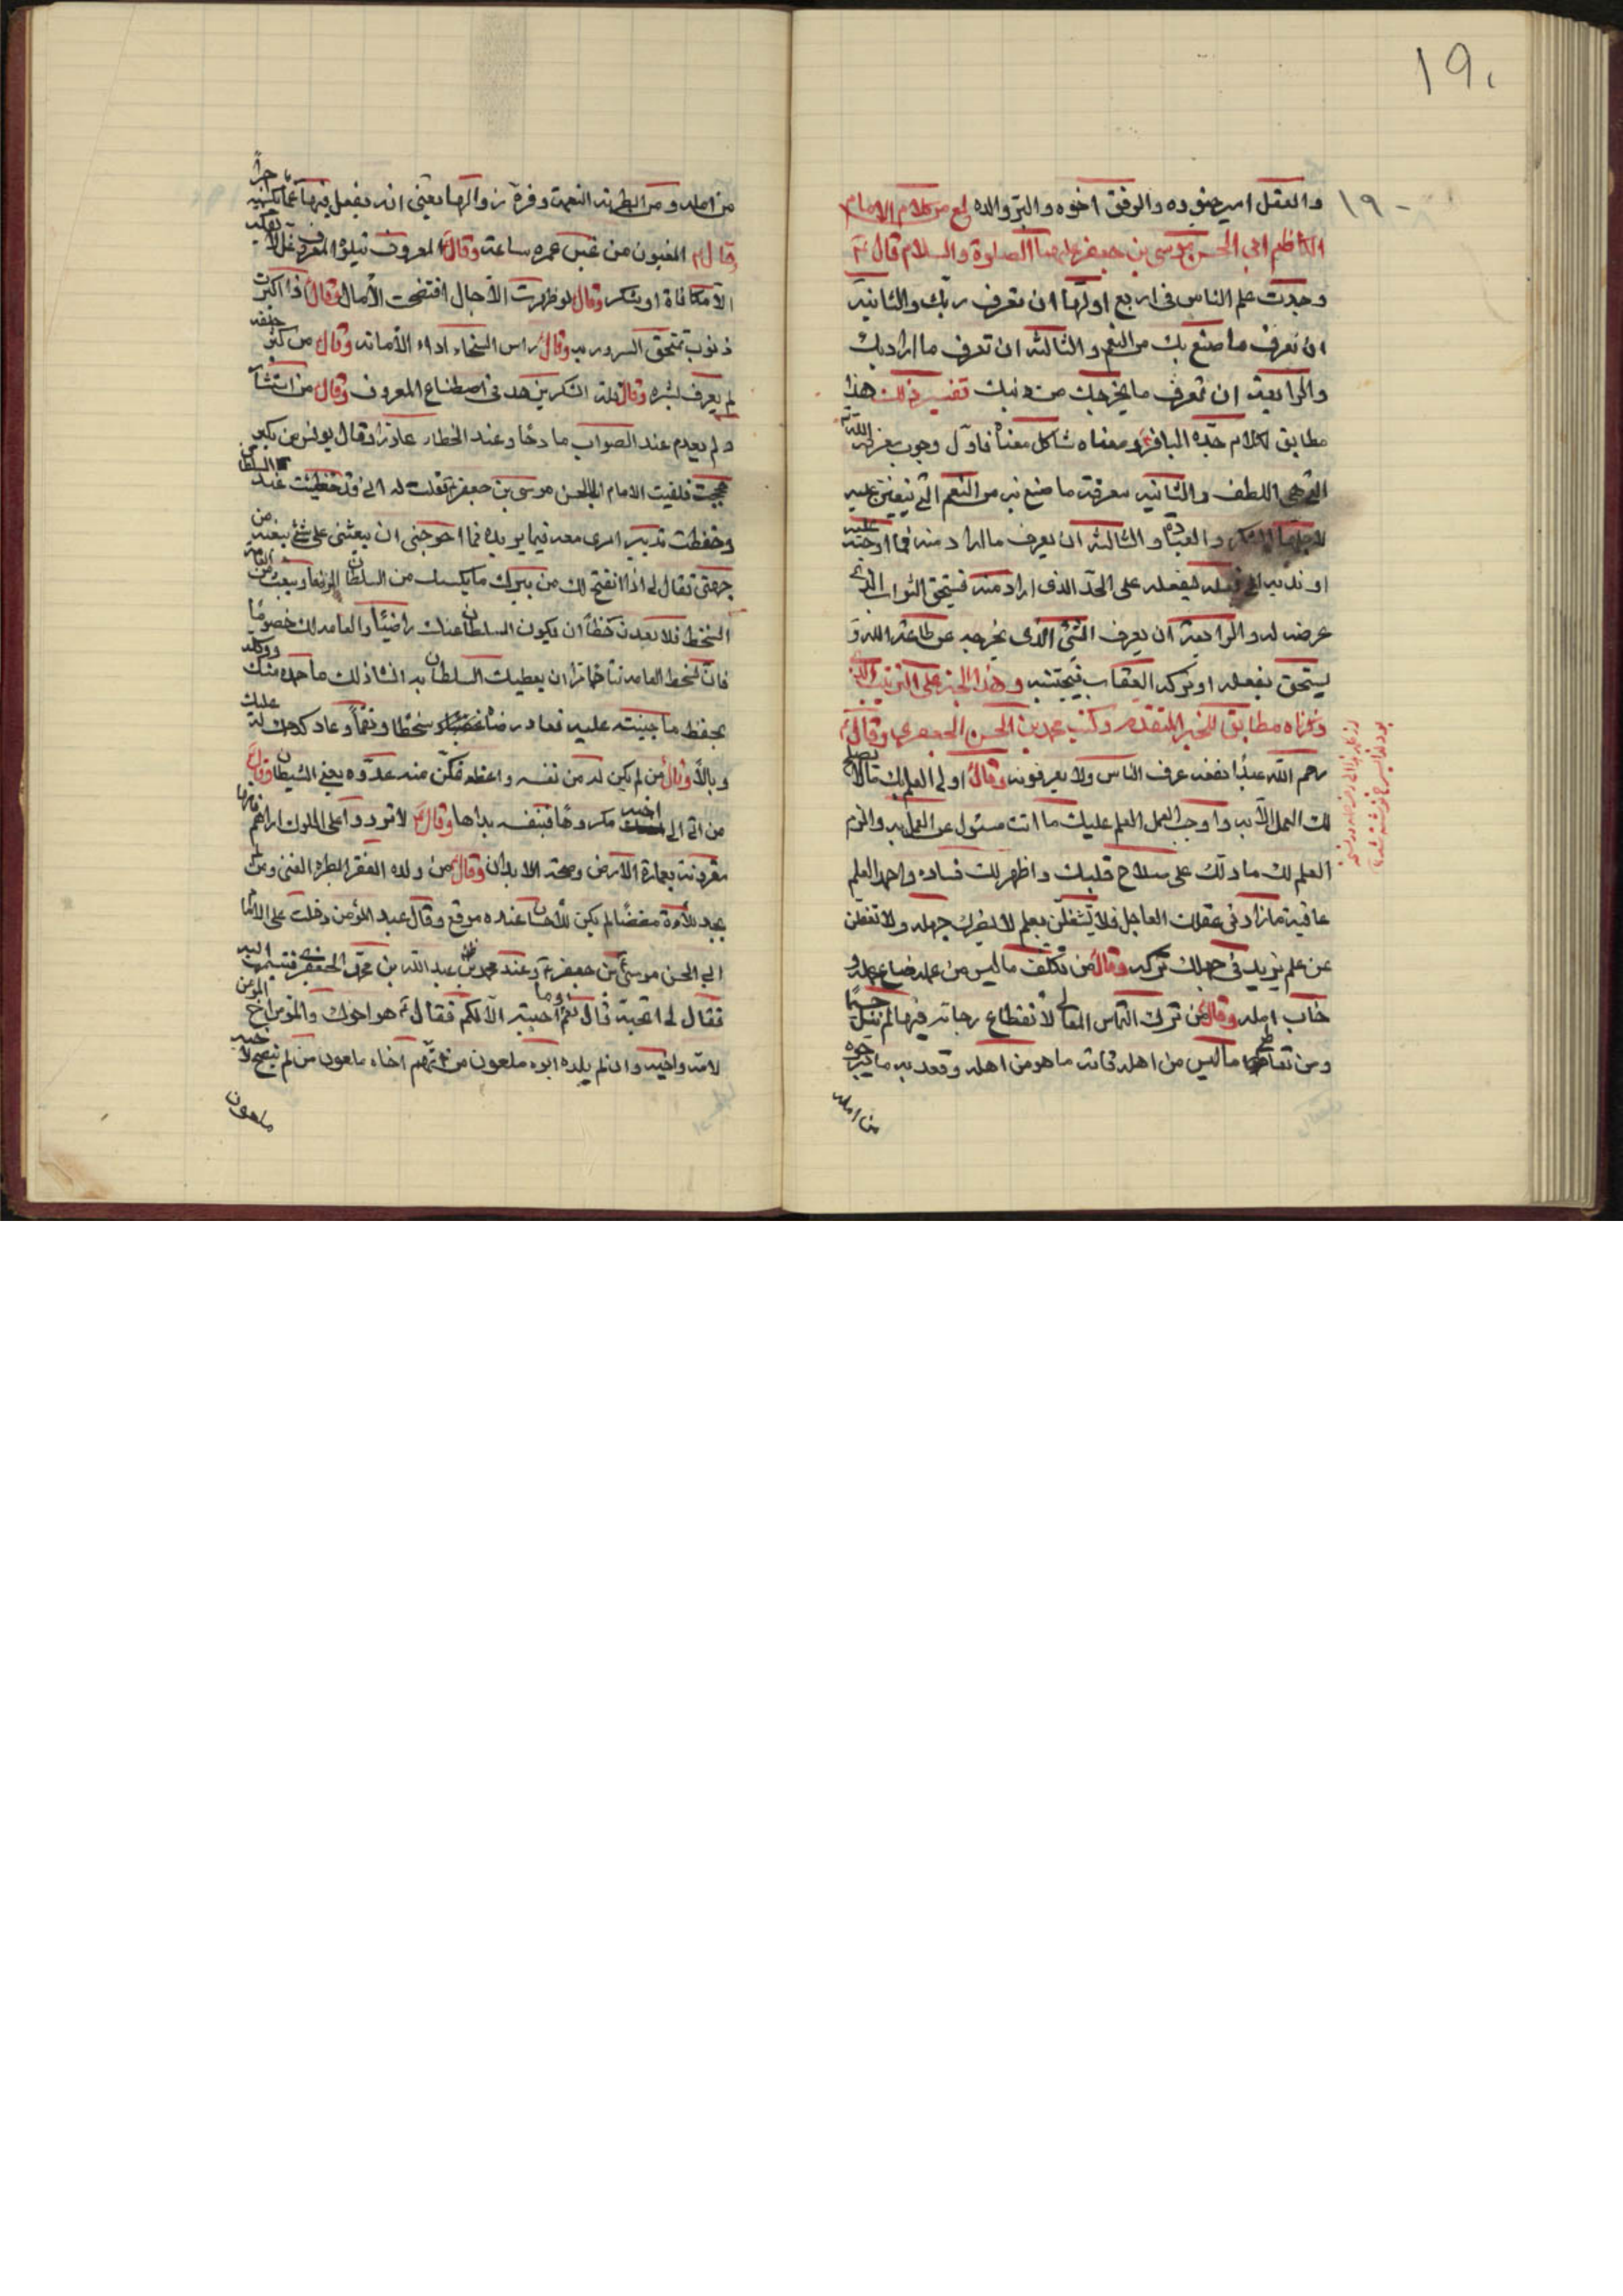 ١٩٠
١٩٠
والعقل امير جنوده والرفق اخوه والبر والده لمع من كلام الامام
الكاظم ابي الحسن موسى بن جعفر عليهما الصلوة والسلام قال ع
وجدت علم الناس في اربع اولها ان تعرف ربك والثانية
ان تعرف ما صنع بك من النعم والثالثة ان تعرف ما اراد بك
والرابعة ان تعرف ما يخرجك من دينك تفسير ذلك هذا
مطابق لكلام جده الباقر ومعناه شاكل معناه فاول وجوب معرفة الله
التي هي اللطف والثانية معرفة ما صنع به من النعم التي يتعين عليه
لاجلها الشكر والعبادة والثالثة ان يعرف ما اراد منه فيما اوجبه عليه
او ندبه الى فعله ليفعله على الحد الذي اراد منه فيستحق الثواب الذي
عرضه له والرابعة ان يعرف الشئ الذي يخرجه عن طاعة الله و
يستحق بفعله او تركه العقاب فيجتنبه وهذا الخبر على الترتيب الذي
ذكرناه مطابق للخبر المتقدم وكتب محمد بن الحسن الجعفري وقال ع
رحم الله عبدا تفقه عرف الناس ولا يعرفونه وقال اولى العلم بك ما لا يصلح
لك العمل الا به واوجب العمل العلم عليك ما انت مسئول عن العمل به والزم
العلم لك ما دلك على صلاح قلبك واظهر لك فساده واحمد العلم
عاقبة ما زاد في عقلك العاجل فلا تشغلن بعلم لا يضرك جهله ولا تغفلن
عن علم يزيد في جهلك تركه وقال من تكلف ما ليس من عمله ضاع عمله و
خاب امله وقال من ترك التماس المعالي لانقطاع رجائه فيها لم ينل جسيما
ومن تعاطى ما ليس من اهله فاته ما هو من اهله وقعد به ما يرجوه
من امله
من امله ومن ابطرته النعمة وقره زوالها يعني انه يفعل فيها
قال ع المغبون من غبن عمره ساعة وقال المعروف يتلوه المعروف غل لا يفكه
الا مكافاة او شكر وقال لو ظهرت الاجال افتضحت الامال وقال اذا اكثرت
ذنوب تمتحق السرور به وقال راس السخاء اداء الامانة وقال من كثر خلقه
لم يعرف بشره وقال قلة الشكر يزهد في اصطناع المعروف وقال من استشار
لم يعدم عند الصواب مادحا وعند الخطاء عاذرا وقال يونس بن بكير
حججت فلقيت الامام ابا الحسن موسى بن جعفر فقلت له اني قد حظيت عند السلطان
وحفظت تدبير امري معه فيما يريده فما احوجني ان يبعثني على شئ
جهتي فقال لي اذا انفتح لك من يبرك ما يكسبك من السلطان الرضا ويبعث من العامة
السخط فلا تعدن حظا ان يكون السلطان عنك راضيا والعامة لك خصوما
فان لسخط العامة نتائجا ان يعطيك السلطان به انشاذ لك ما حمده منك ووكله
بحفظ ما جنيته عليه فعاد رضاه سخطا ونقما وعاد كدحك له عليك
وبالا وقال من لم يكن له من نفسه واعظ تمكن منه عدوه يعني الشيطان وقال
من اتى الى اخيه مكروها فبنفسه بداها وقال لا تردوا على الملوك اراءهم فانها
مقرونة بعمارة الارض وصحة الابدان وقال من ولده الفقر ابطره الغنى ومن لم
يجد للاساءة مضضا لم يكن للاحسان عنده موقع وقال عبد المؤمن دخلت على الامام
ابي الحسن موسى بن جعفر وعند محمد بن عبد الله بن محمد الجعفري فتبسمت اليه
فقال لي اتحبه قال نعم وما احببته الا لكم فقال ع هو اخوك والمؤمن اخ المؤمن
لامه وابيه وان لم يلده ابوه ملعون من اتهم اخاه ملعون من لم ينصح لاخيه
ملعون